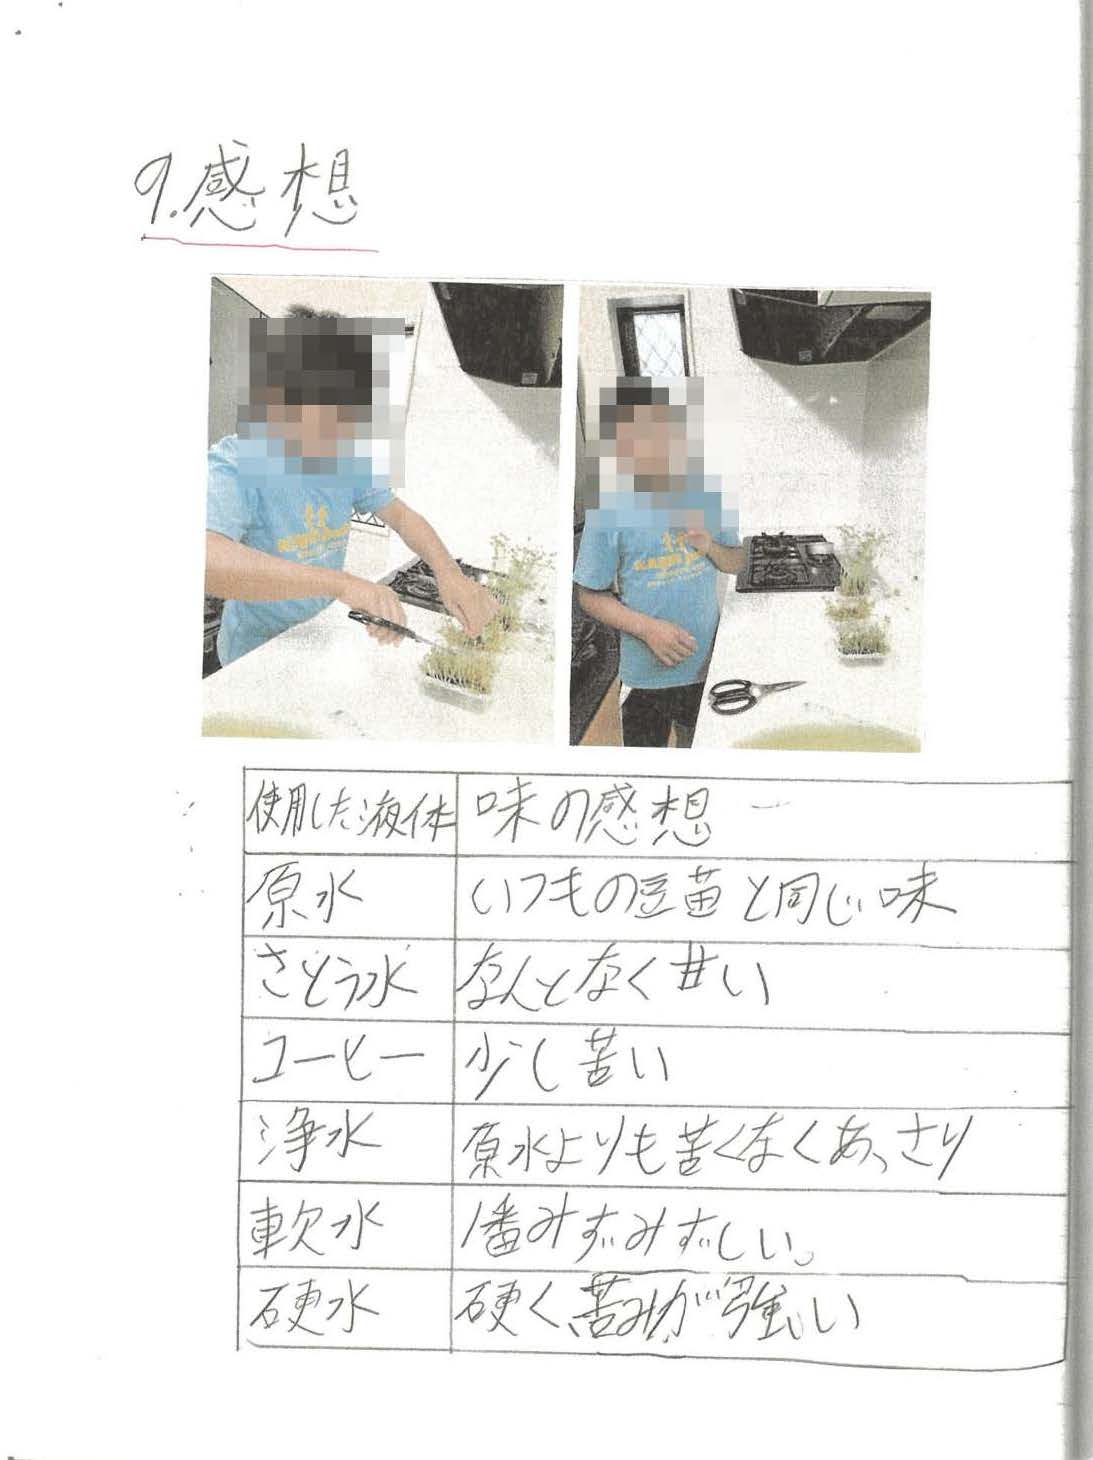 9.感想
使用した液体 味の感想
原水 いつもの豆苗と同じ味
さとう水 なんとなく甘い
コーヒー 少し苦い
浄水 原水よりも苦くなくあっさり
軟水 1番みずみずしい。
硬水 硬く、苦みが強い